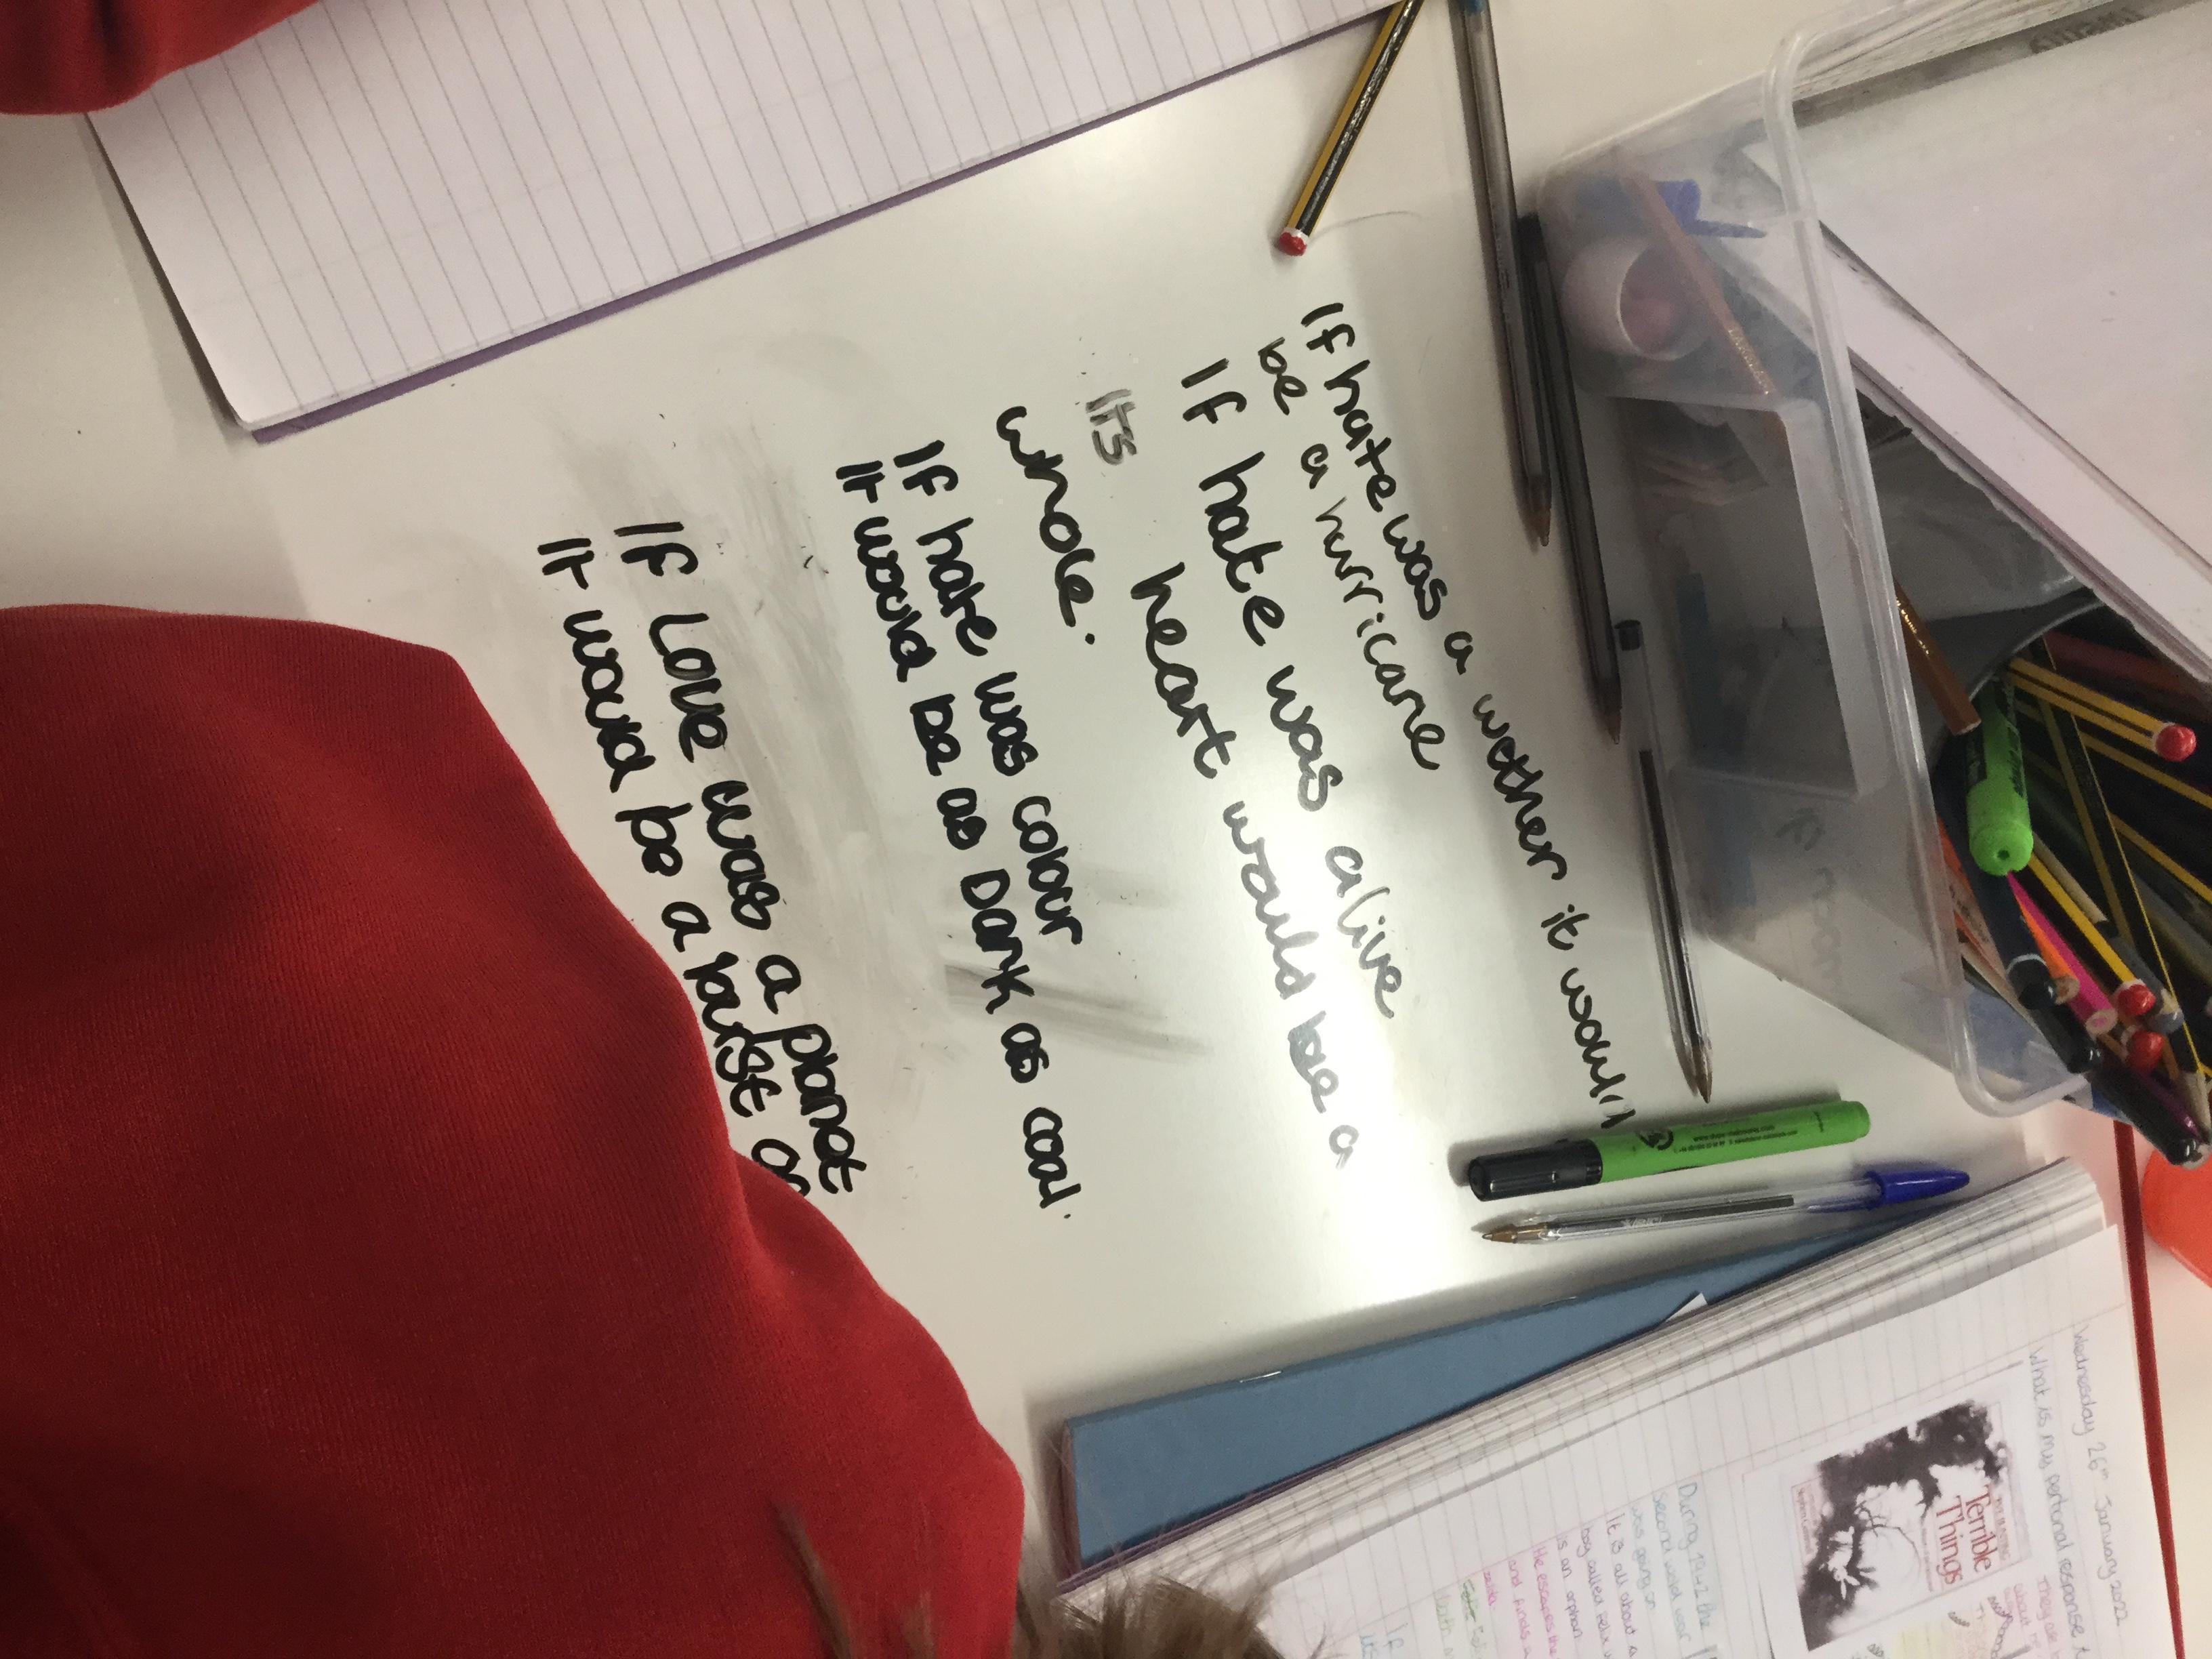 If hate was a wether it would
be a hurricane
If hate was alive
Its heart would be a
whole.
If hate was colour
It would be as Dark as coal.
If Love was a planet
It would be a
Wednesday 26th January 2022
What is my personal response t
Terrible
Things
During 1942 the
second world war
was going on
It is all about a
boy called Felix
is an orphan
He escapes the
and finds a
If